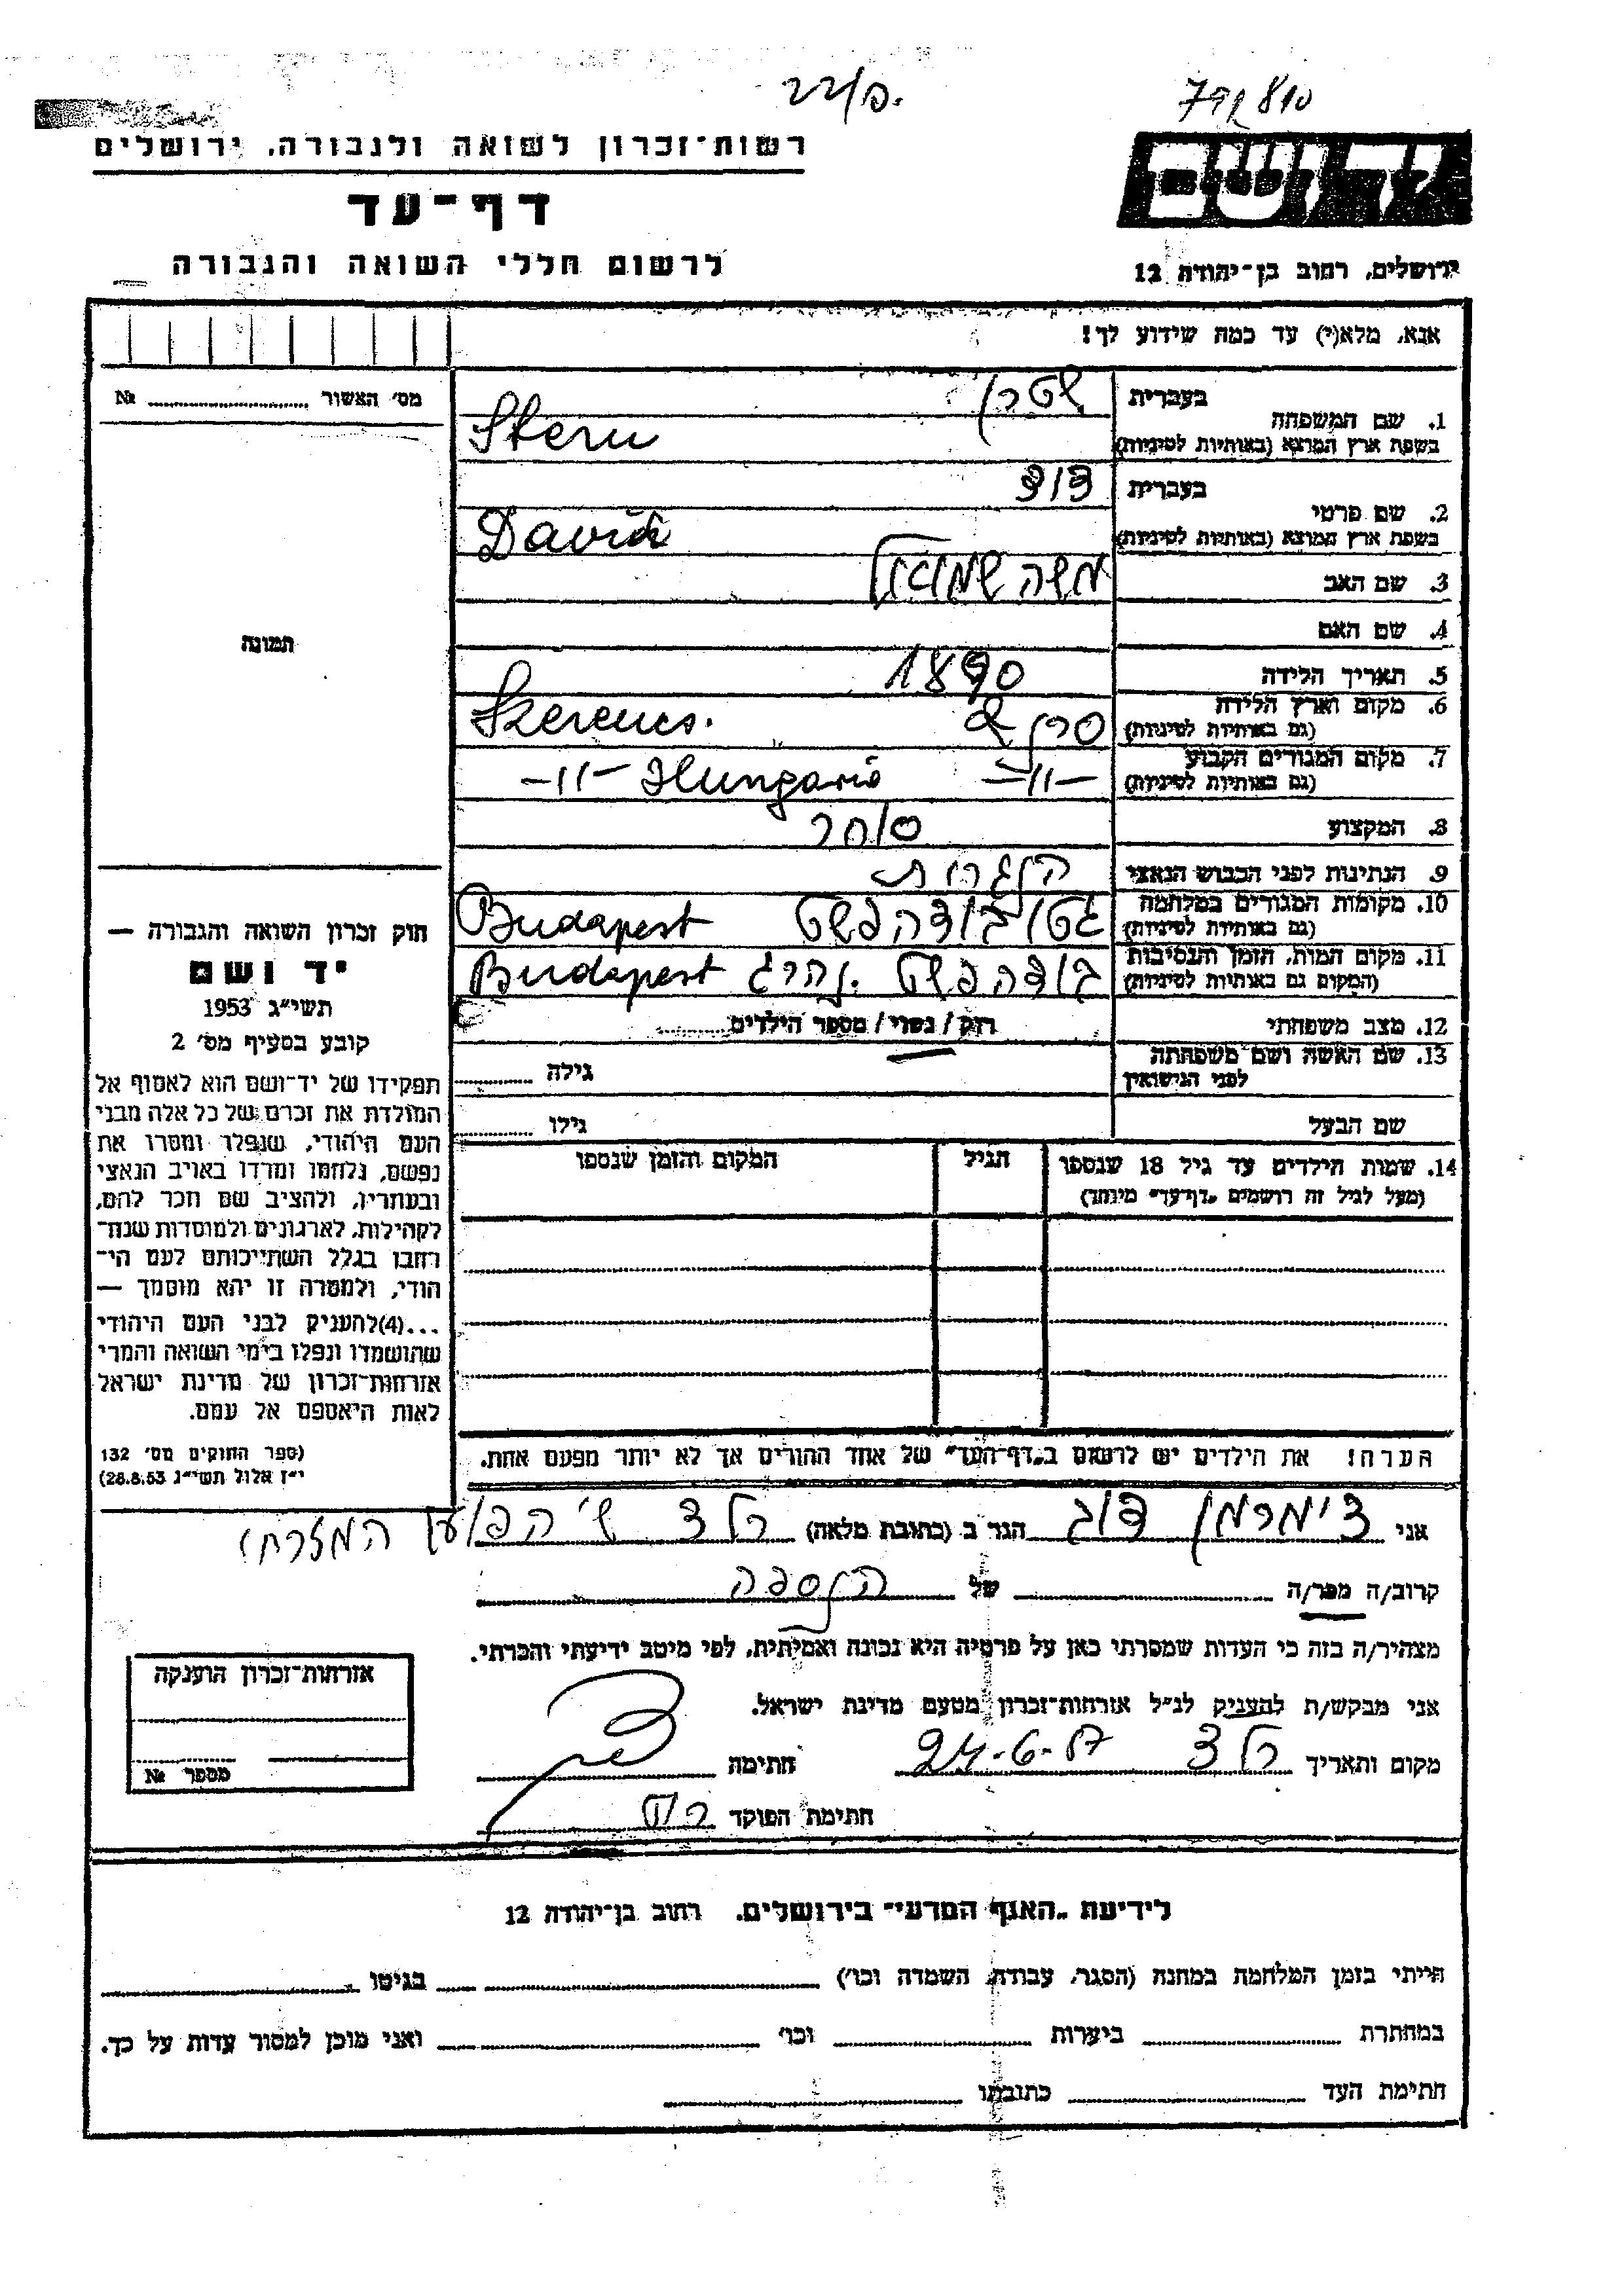 22/ס.
792810
רשות-זכרון לשואה ולגבורה, ירושלים
דף-עד
לרשום חללי השואה והגבורה
יד ושם
ירושלים, רחוב בן-יהודה 12
אנא, מלא(י) עד כמה שידוע לך!
מס' האשור № ........
תמונה
1. שם המשפחה בעברית שטרן
בשפת ארץ המוצא (באותיות לטיניות) Stern
2. שם פרטי בעברית דוד
בשפת ארץ המוצא (באותיות לטיניות) David
3. שם האב משה שמואל
4. שם האם
5. תאריך הלידה 1890
6. מקום וארץ הלידה
(גם באותיות לטיניות) סרנץ Szerencs.
7. מקום המגורים הקבוע
(גם באותיות לטיניות) –11– –11– Hungaria
8. המקצוע סוחר
9. הנתינות לפני הכבוש הנאצי הונגרית
10. מקומות המגורים במלחמה
(גם באותיות לטיניות) גטו בודהפשט Budapest
11. מקום המות, הזמן והנסיבות
(המקום גם באותיות לטיניות) בודהפשט. נהרג Budapest
12. מצב משפחתי רוק / נשוי / מספר הילדים........
13. שם האשה ושם משפחתה
לפני הנישואין גילה ........
שם הבעל גילו ........
14. שמות הילדים עד גיל 18 שנספו הגיל המקום והזמן שנספו
(מעל לגיל זה רושמים "דף-עד" מיוחד)
הערה! את הילדים יש לרשום ב"דף-העד" של אחד ההורים אך לא יותר מפעם אחת.
חוק זכרון השואה והגבורה —
יד ושם
תשי"ג 1953
קובע בסעיף מס' 2
תפקידו של יד-ושם הוא לאסוף אל
המולדת את זכרם של כל אלה מבני
העם היהודי, שנפלו ומסרו את
נפשם, נלחמו ומרדו באויב הנאצי
ובעוזריו, ולהציב שם וזכר להם,
לקהילות, לארגונים ולמוסדות שנח-
רבו בגלל השתייכותם לעם הי-
הודי, ולמטרה זו יהא מוסמך —
...(4)להעניק לבני העם היהודי
שהושמדו ונפלו בימי השואה והמרי
אזרחות-זכרון של מדינת ישראל
לאות היאספם אל עמם.
(ספר החוקים מס' 132
י"ז אלול תשי"ג 28.8.53)
אני צימרמן דוב הגר ב (כתובת מלאה) רלצ ש' הפועל המזרחי
קרוב/ה מכר/ה ........ של הנספה
מצהיר/ה בזה כי העדות שמסרתי כאן על פרטיה היא נכונה ואמיתית, לפי מיטב ידיעתי והכרתי.
אני מבקש/ת להעניק לנ"ל אזרחות-זכרון מטעם מדינת ישראל.
מקום ותאריך רלצ 24-6-57 חתימה
חתימת הפוקד
אזרחות-זכרון הוענקה
מספר №
לידיעת "האגף המדעי" בירושלים, רחוב בן-יהודה 12
הייתי בזמן המלחמה במחנה (הסגר, עבודה, השמדה וכו') ........ בגיטו ........
במחתרת ........ ביערות ........ וכו' ........ ואני מוכן למסור עדות על כך.
חתימת העד ........ כתובתו ........